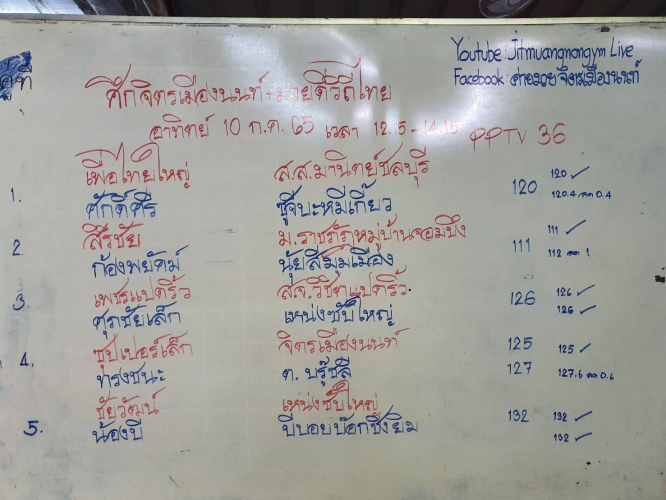 Youtube: Jitmuangnongym Live
Facebook: ค่ายมวย จิตรเมืองนนท์
คู่ที่
ศึกจิตรเมืองนนท์+มวยดีวิถีไทย
อาทิตย์ 10 ก.ค. 65 เวลา 12.15 - 14.15 PPTV 36
เพื่อไทยใหญ่ ส.ส.มานิตย์ชลบุรี 120 ✓
1. 120
ศักดิ์ศรี ชูจุ๊บะหมี่เกี๊ยว 120.4 ลด 0.4
สิรชัย ม.ราชภัฏหมู่บ้านจอมบึง 111 ✓
2. 111
ก้องพยัคฆ์ นุ้ยสี่มุมเมือง 112 ลด 1
เพชรแปดริ้ว ส.จ.วิชิตแปดริ้ว 126 ✓
3. 126
ศุภชัยเล็ก เหน่งซับใหญ่ 126 ✓
ซุปเปอร์เล็ก จิตรเมืองนนท์ 125 125 ✓
4.
ทรงชนะ ต. บรู๊ซลี 127 127.6 ลด 0.6
ชัยวัฒน์ เหน่งซับใหญ่
5. 132 132 ✓
น้องบี บีบอยบ๊อกซิ่งยิม 132 ✓